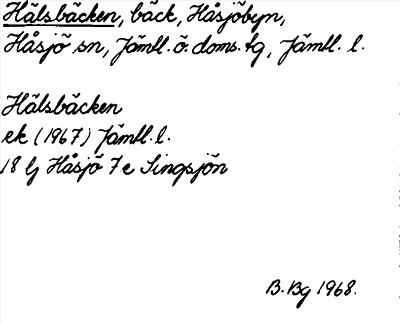 Hälsbäcken, bäck, Håsjöbyn,
Håsjö sn, Jämtl. ö. doms. tg, Jämtl. l.
Hälsbäcken
ek (1967) Jämtl. l.
18 G Håsjö 7 e Singsjön
B. Bg 1968.